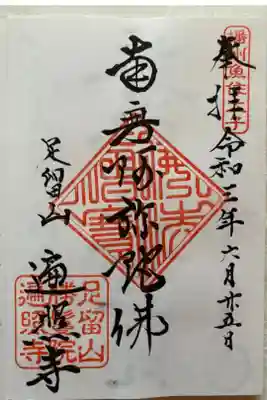 奉拝 令和三年六月廿五日
南無阿弥陀佛
足留山 遍照寺
佛法僧寶
足留山
遍照寺